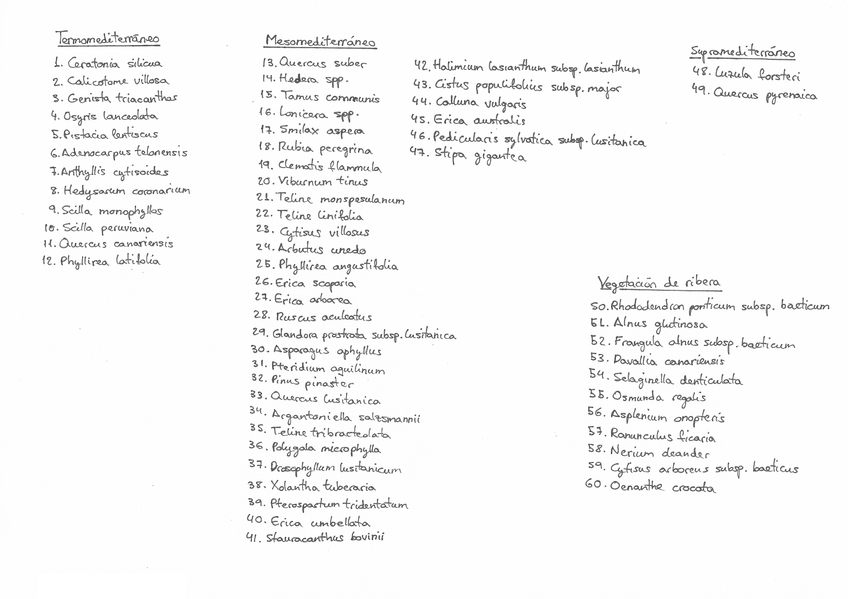 Termomediterráneo
1. Ceratonia silicua
2. Calicotome villosa
3. Genista triacanthos
4. Osyris lanceolata
5. Pistacia lentiscus
6. Adenocarpus telonensis
7. Anthyllis cytisoides
8. Hedysarum coronarium
9. Scilla monophyllos
10. Scilla peruviana
11. Quercus canariensis
12. Phyllirea latifolia
Mesomediterráneo
13. Quercus suber
14. Hedera spp.
15. Tamus communis
16. Lonicera spp.
17. Smilax aspera
18. Rubia peregrina
19. Clematis flammula
20. Viburnum tinus
21. Teline monspesulanum
22. Teline linifolia
23. Cytisus villosus
24. Arbutus unedo
25. Phyllirea angustifolia
26. Erica scoparia
27. Erica arborea
28. Ruscus aculeatus
29. Glandora prostrata subsp. lusitanica
30. Asparagus aphyllus
31. Pteridium aquilinum
32. Pinus pinaster
33. Quercus lusitanica
34. Argantoniella salzsmannii
35. Teline tribracteolata
36. Polygala microphylla
37. Drosophyllum lusitanicum
38. Xolantha tuberaria
39. Pterospartum tridentatum
40. Erica umbellata
41. Stauracanthus bovinii
42. Halimium lasianthum subsp. lasianthum
43. Cistus populifolius subsp. major
44. Calluna vulgaris
45. Erica australis
46. Pedicularis sylvatica subsp. lusitanica
47. Stipa gigantea
Supramediterráneo
48. Luzula forsteri
49. Quercus pyrenaica
Vegetación de ribera
50. Rhododendron ponticum subsp. baeticum
51. Alnus glutinosa
52. Frangula alnus subsp. baeticum
53. Davallia canariensis
54. Selaginella denticulata
55. Osmunda regalis
56. Asplenium onopteris
57. Ranunculus ficaria
58. Nerium oleander
59. Cytisus arboreus subsp. baeticus
60. Oenanthe crocata